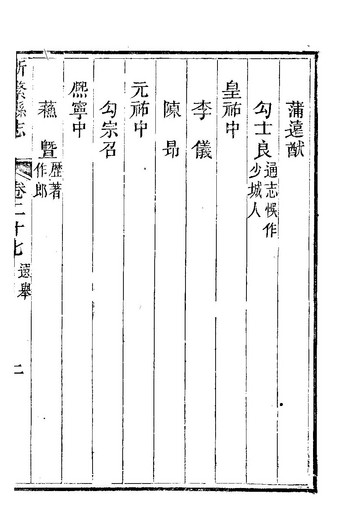 蒲遠猷
勾士良 通志悞作少城人
皇祐中
李儀
陳昻
元祐中
勾宗召
熈寧中
蘇曁 歴著作郎
新繁縣志 卷二十七 選舉 二